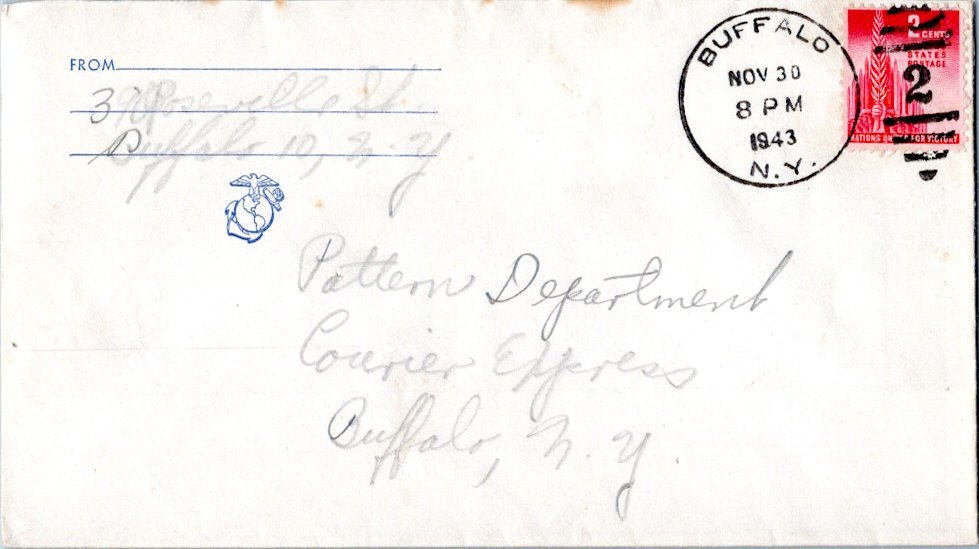 FROM
39 Roseville St
Buffalo 10, N. Y.
BUFFALO
NOV 30
8 PM
1943
N.Y.
2 CENTS
UNITED STATES
POSTAGE
2
NATIONS UNITED FOR VICTORY
Pattern Department
Courier Express
Buffalo, N. Y.